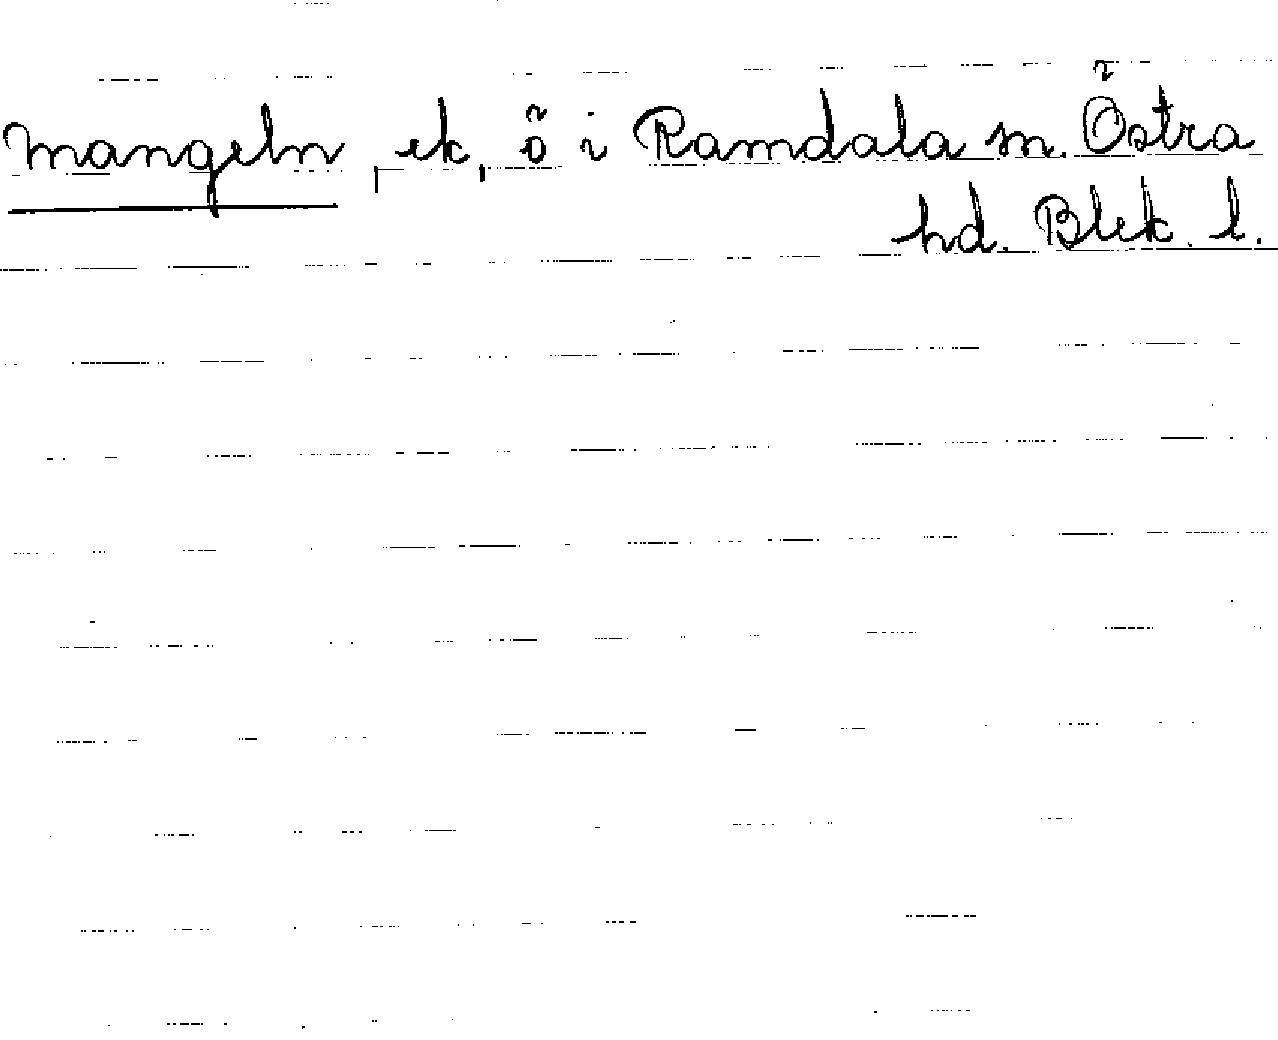 mangeln, ek, ö i Ramdala sn. Östra
hd. Blek. l.